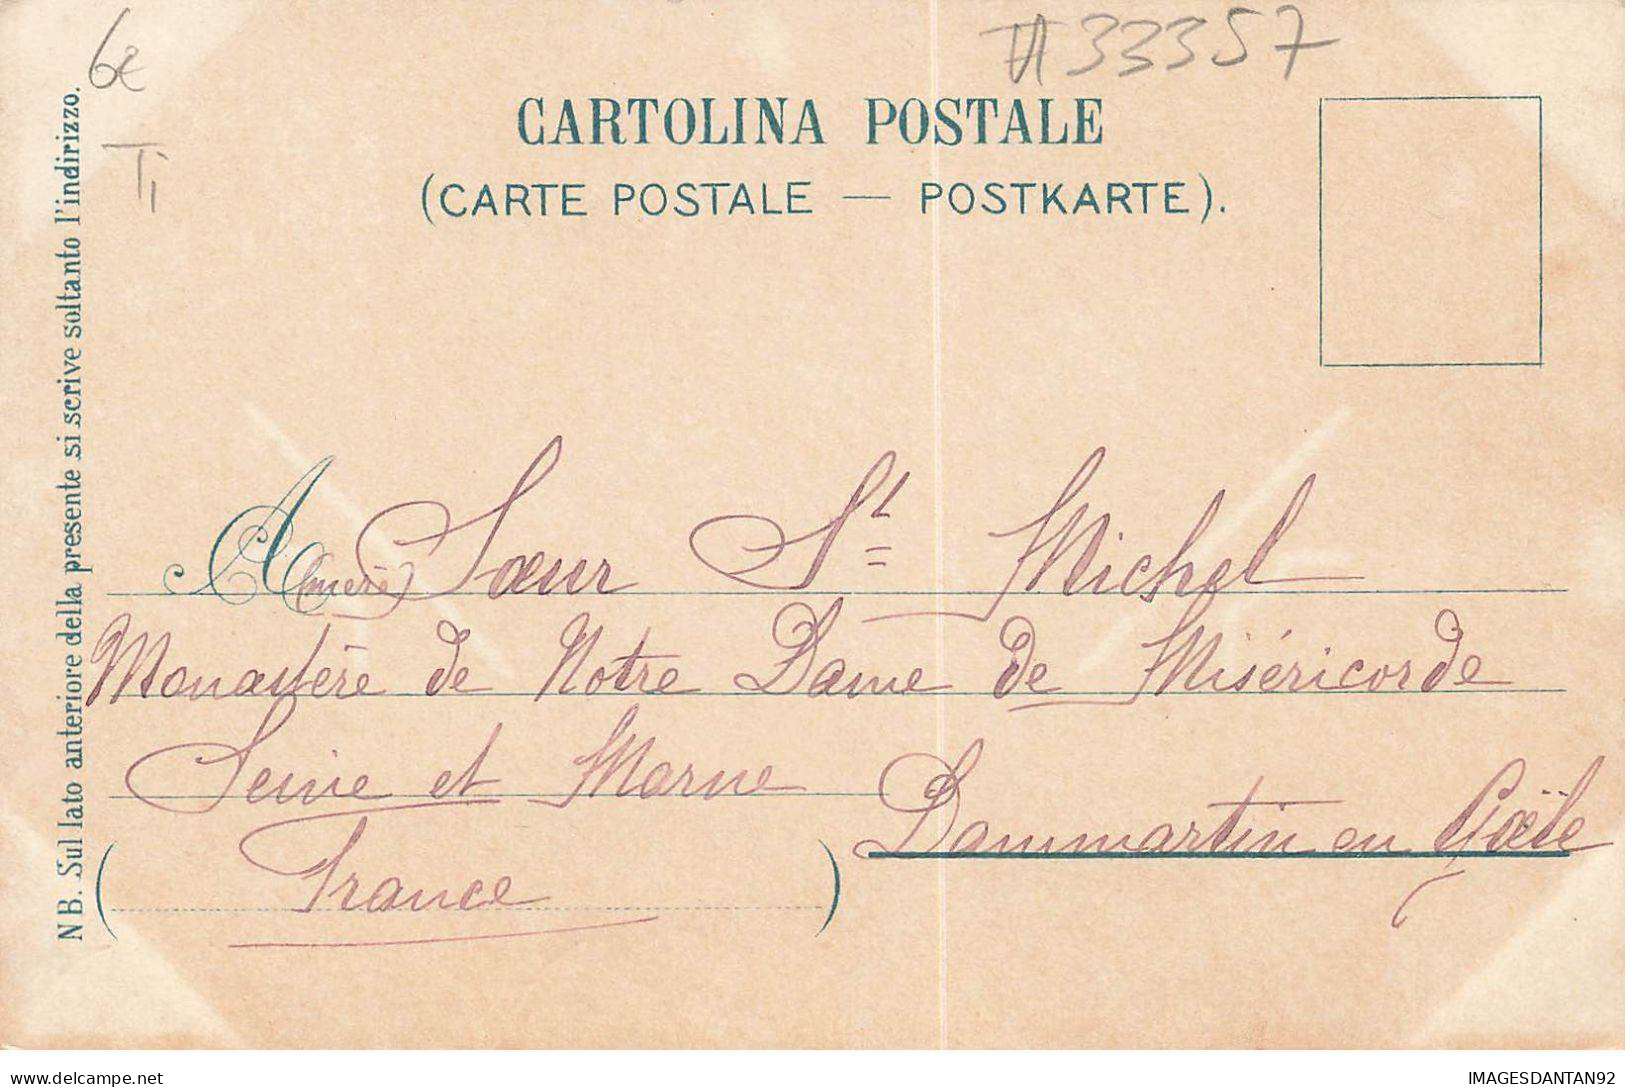 6€
Ti
#33357
CARTOLINA POSTALE
(CARTE POSTALE — POSTKARTE).
NB. Sul lato anteriore della presente si scrive soltanto l'indirizzo.
A (mere) Sœur St Michel
Monastère de Notre Dame de Miséricorde
Seine et Marne Dammartin en Goële
(France)
IMAGESDANTAN92
delcampe.net